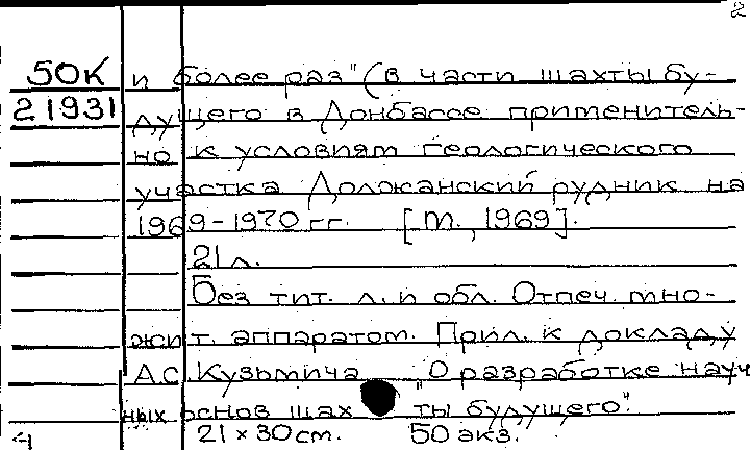 2
50К и более раз" (в части шахты бу-
21931 дущего в Донбассе применитель-
но к условиям геологического
участка Должанский рудник на
1969-1970 гг. [М., 1969].
21 л.
Без тит. л. и обл. Отпеч. мно-
жит. аппаратом. Прил. к докладу
А.С. Кузьмича "О разработке науч
ных основ шахты будущего".
21 × 30 см. 50 экз.
Ч